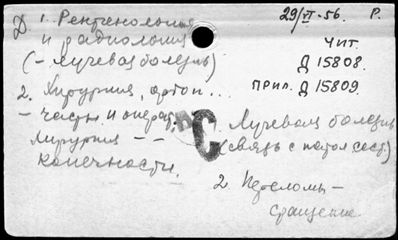 Д. 1. Рентгенология 29/VI-56. Р.
и радиология
(- Лучевая болезнь)
ЧИТ.
Д 15808.
ПРИЛ. Д 15809.
2. Хирургия, ортоп...
- частн и операт.
Хирургия - -
конечности.
С
1. Лучевая болезнь
(связь с патол сост)
2. Переломы -
сращение